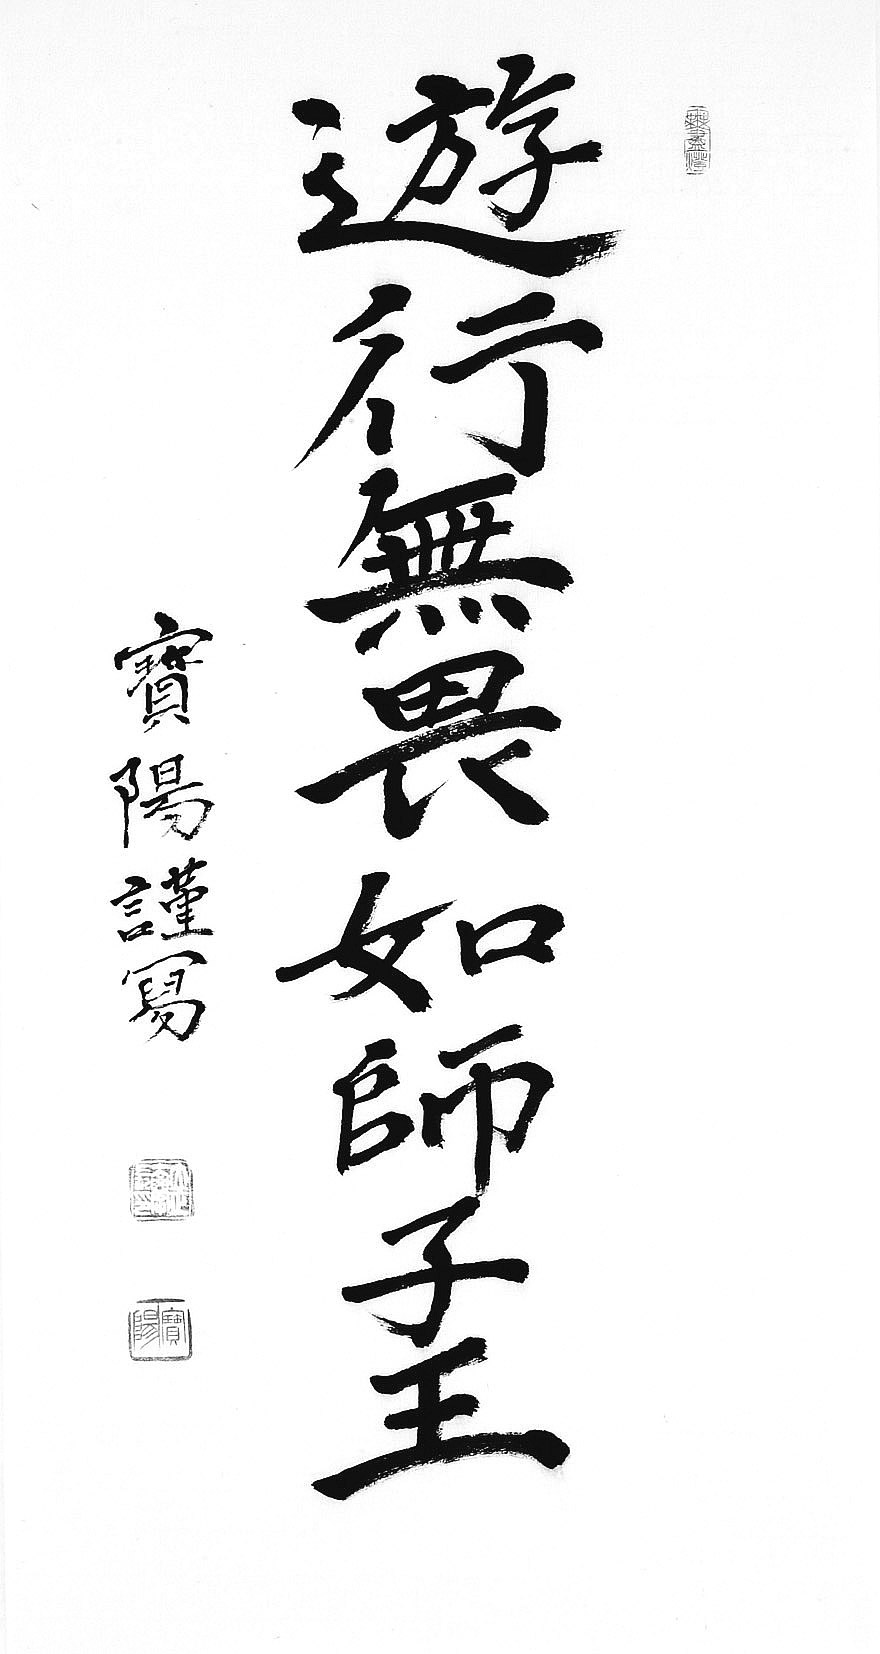 遊行無畏如師子王
寶陽謹寫
寶陽